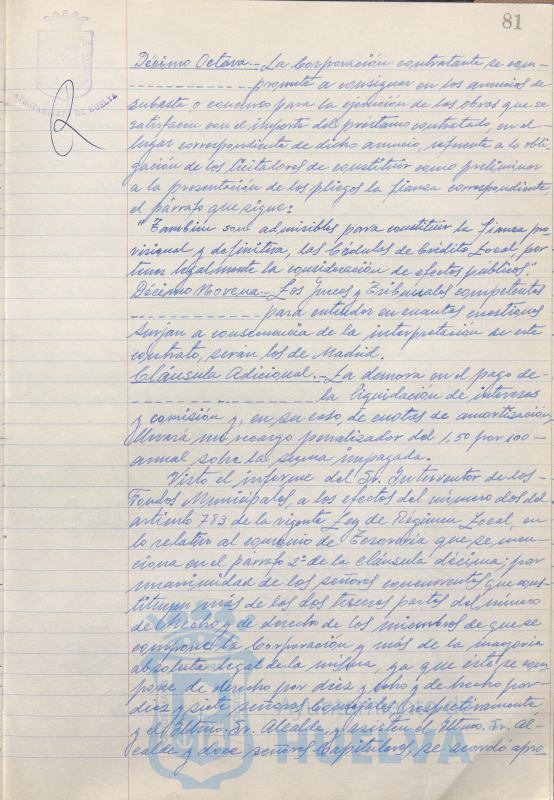 81
AYUNTAMIENTO DE HUELVA
Décimo Octava.- La Corporación contratante se com-
promete a consignar en los anuncios de
subasta o concurso para la ejecución de las obras que se
satisfacen con el importe del préstamo contratado, en el
lugar correspondiente de dicho anuncio, referente a la obli-
gación de los licitadores de constituir como preliminar
a la presentación de los pliegos la fianza correspondiente
el párrafo que sigue:
"También son admisibles para constituir la fianza pro-
visional y definitiva, las Cédulas de Crédito Local, por
tener legalmente la consideración de efectos públicos."
Décimo Novena.- Los Jueces y Tribunales competentes
para entender en cuantas cuestiones
surjan a consecuencia de la interpretación de este
contrato, serán los de Madrid.
Cláusula Adicional.- La demora en el pago de
la liquidación de intereses
y comisión y, en su caso, de cuotas de amortización
llevará un recargo penalizador del 1,50 por 100
anual sobre la suma impagada.
Visto el informe del Sr. Interventor de los
Fondos Municipales, a los efectos del número dos del
artículo 783 de la vigente Ley de Régimen Local, en
lo relativo al convenio de Tesorería que se men-
ciona en el párrafo 2º de la cláusula décima; por
unanimidad de los señores concurrentes que cons-
tituyen más de las dos terceras partes del número
de hecho y de derecho de los miembros de que se
compone la Corporación y más de la mayoría
absoluta legal de la misma, ya que esta se com
pone de derecho por diez y ocho y de hecho por
diez y siete señores Concejales respectivamente
y el Iltmo. Sr. Alcalde, y asisten el Iltmo. Sr. Al-
calde y doce señores Capitulares, se acordó apro-
HUELVA